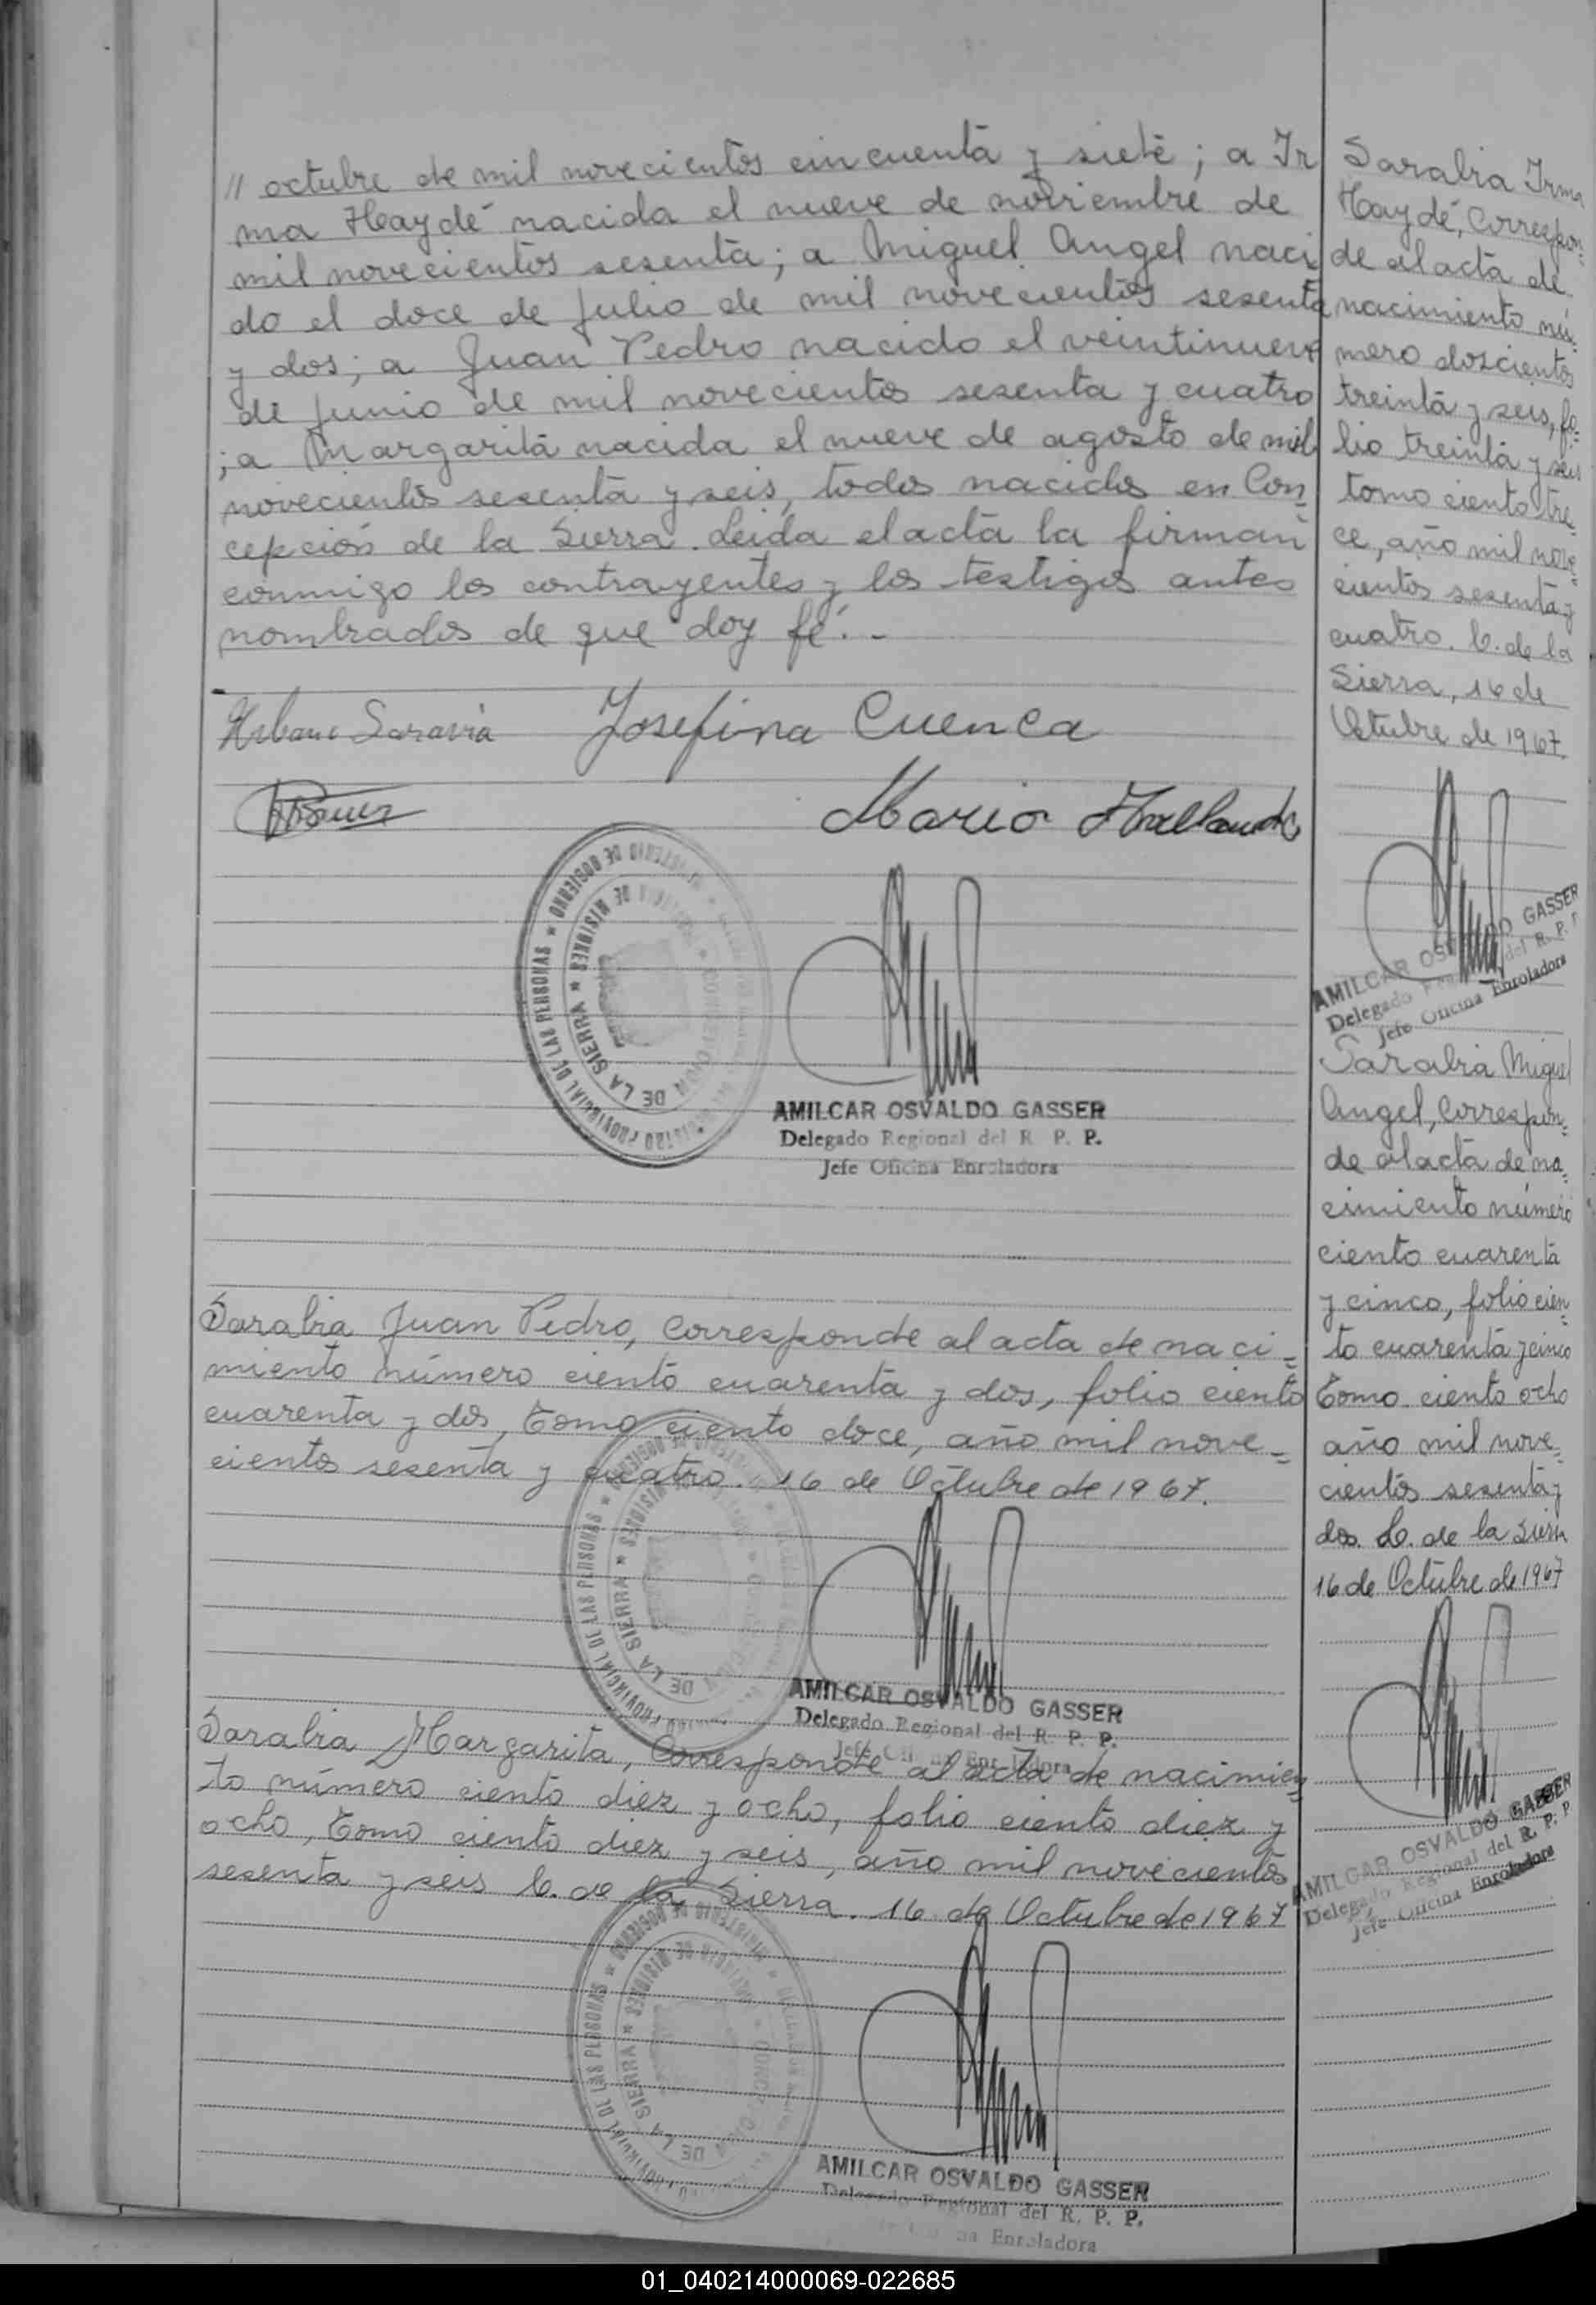 // octubre de mil novecientos cincuenta y siete; a Ir
ma Haydé nacida el nueve de noviembre de
mil novecientos sesenta; a Miguel Angel naci
do el doce de Julio de mil novecientos sesenta
y dos; a Juan Pedro nacido el veintinueve
de junio de mil novecientos sesenta y cuatro
; a Margarita nacida el nueve de agosto de mil
novecientos sesenta y seis, todos nacidos en Con
cepción de la Sierra. Leida el acta la firman
conmigo los contrayentes y los testigos antes
nombrados de que doy fé.-
Urbano Saravia Josefina Cuenca
Mario
REGISTRO PROVINCIAL DE LAS PERSONAS * MINISTERIO DE GOBIERNO
DE LA SIERRA * DE MISIONES
AMILCAR OSVALDO GASSER
Delegado Regional del R. P. P.
Jefe Oficina Enroladora
Sarabia Juan Pedro, Corresponde al acta de naci=
miento número ciento cuarenta y dos, folio ciento
cuarenta y dos, Tomo ciento doce, año mil nove=
cientos sesenta y cuatro. 16 de Octubre de 1967.
PROVINCIAL DE LAS PERSONAS
DE LA SIERRA * MISIONES
AMILCAR OSVALDO GASSER
Delegado Regional del R. P. P.
Jefe Oficina Enroladora
Sarabia Margarita, Corresponde al acta de nacimien=
to número ciento diez y ocho, folio ciento diez y
ocho, Tomo ciento diez y seis, año mil novecientos
sesenta y seis C. de la Sierra. 16 de Octubre de 1967
PROVINCIAL DE LAS PERSONAS * MINISTERIO DE GOBIERNO
DE LA SIERRA * DE MISIONES
AMILCAR OSVALDO GASSER
Delegado Regional del R. P. P.
Enroladora
Sarabia Irma
Haydé, Correspon=
de al acta de
nacimiento nú=
mero doscientos
treinta y seis, fo=
lio treinta y seis
tomo ciento tre=
ce, año mil nove=
cientos sesenta y
cuatro. C. de la
Sierra, 16 de
Octubre de 1967.
AMILCAR OSVALDO GASSER
Delegado Regional del R. P. P.
Jefe Oficina Enroladora
Sarabia Miguel
Angel, Correspon=
de al acta de na=
cimiento número
ciento cuarenta
y cinco, folio cien=
to cuarenta y cinco
Tomo ciento ocho
año mil nove=
cientos sesenta y
dos. C. de la Sierra
16 de Octubre de 1967
AMILCAR OSVALDO GASSER
Delegado Regional del R. P. P.
Jefe Oficina Enroladora
01_040214000069-022685